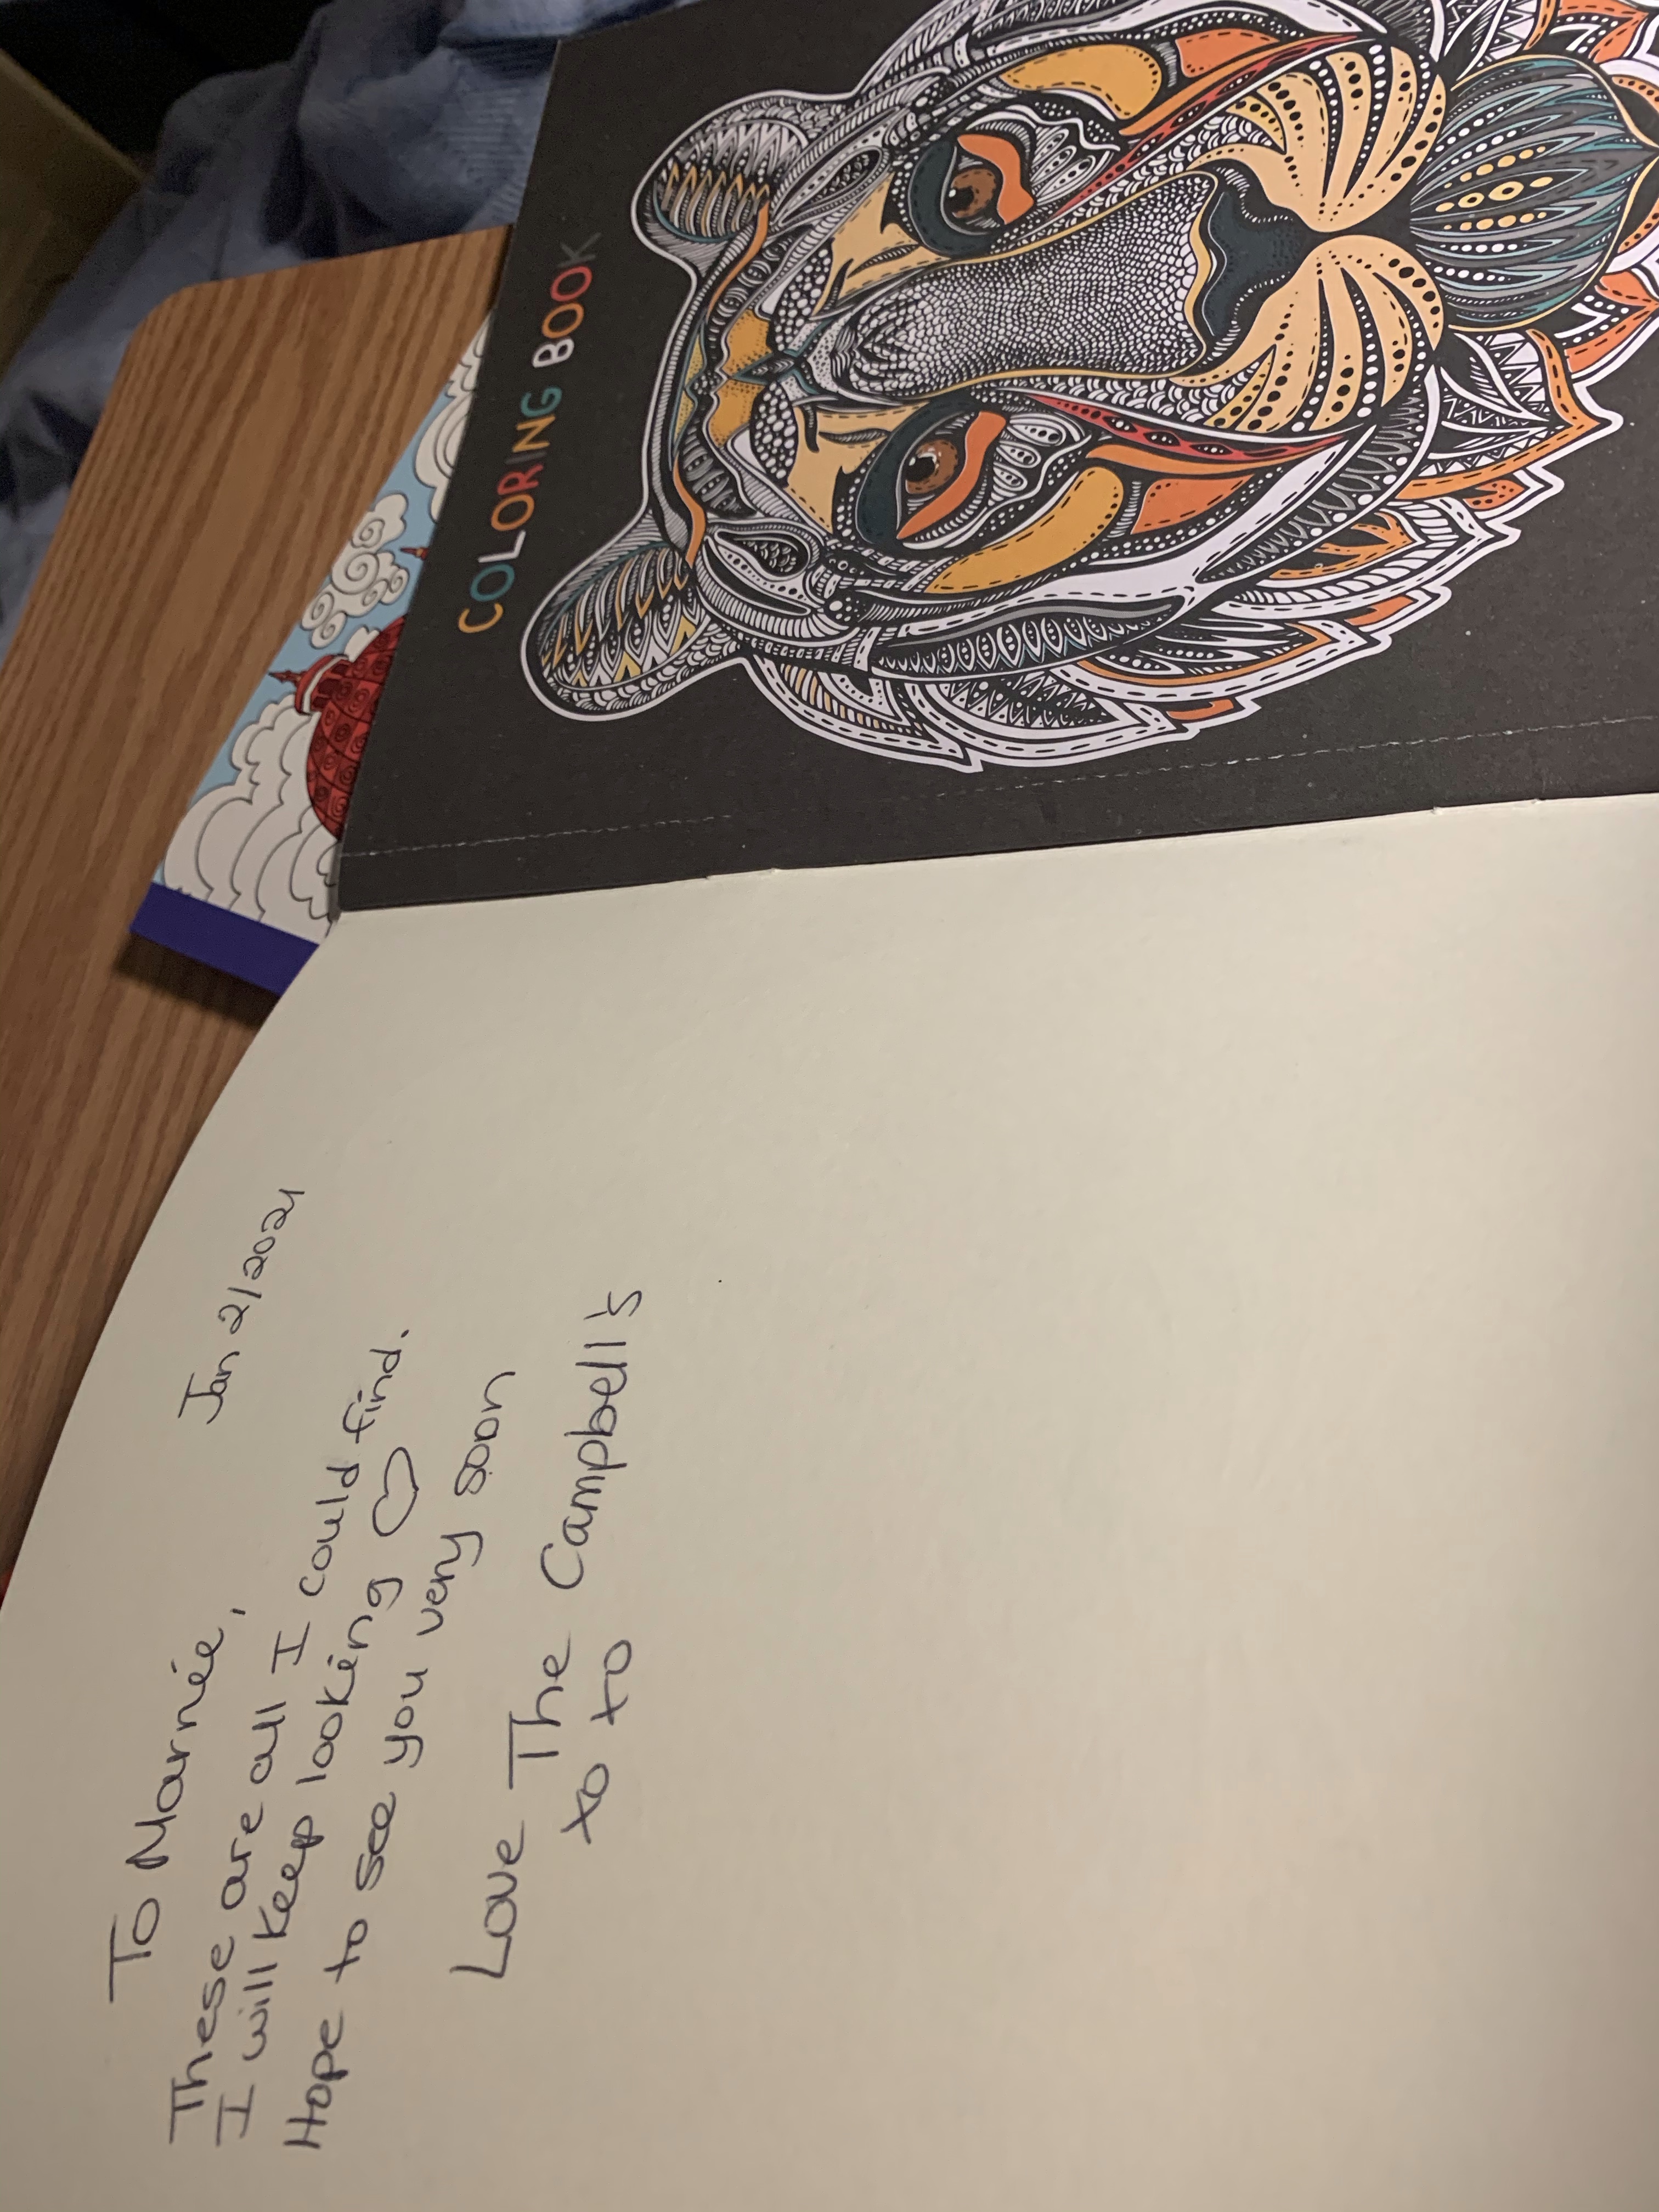 COLORING BOOK
Jan 2/2021
To Marnie,
These are all I could find.
I will keep looking ♡
Hope to see you very soon
Love The Campbell's
xo xo